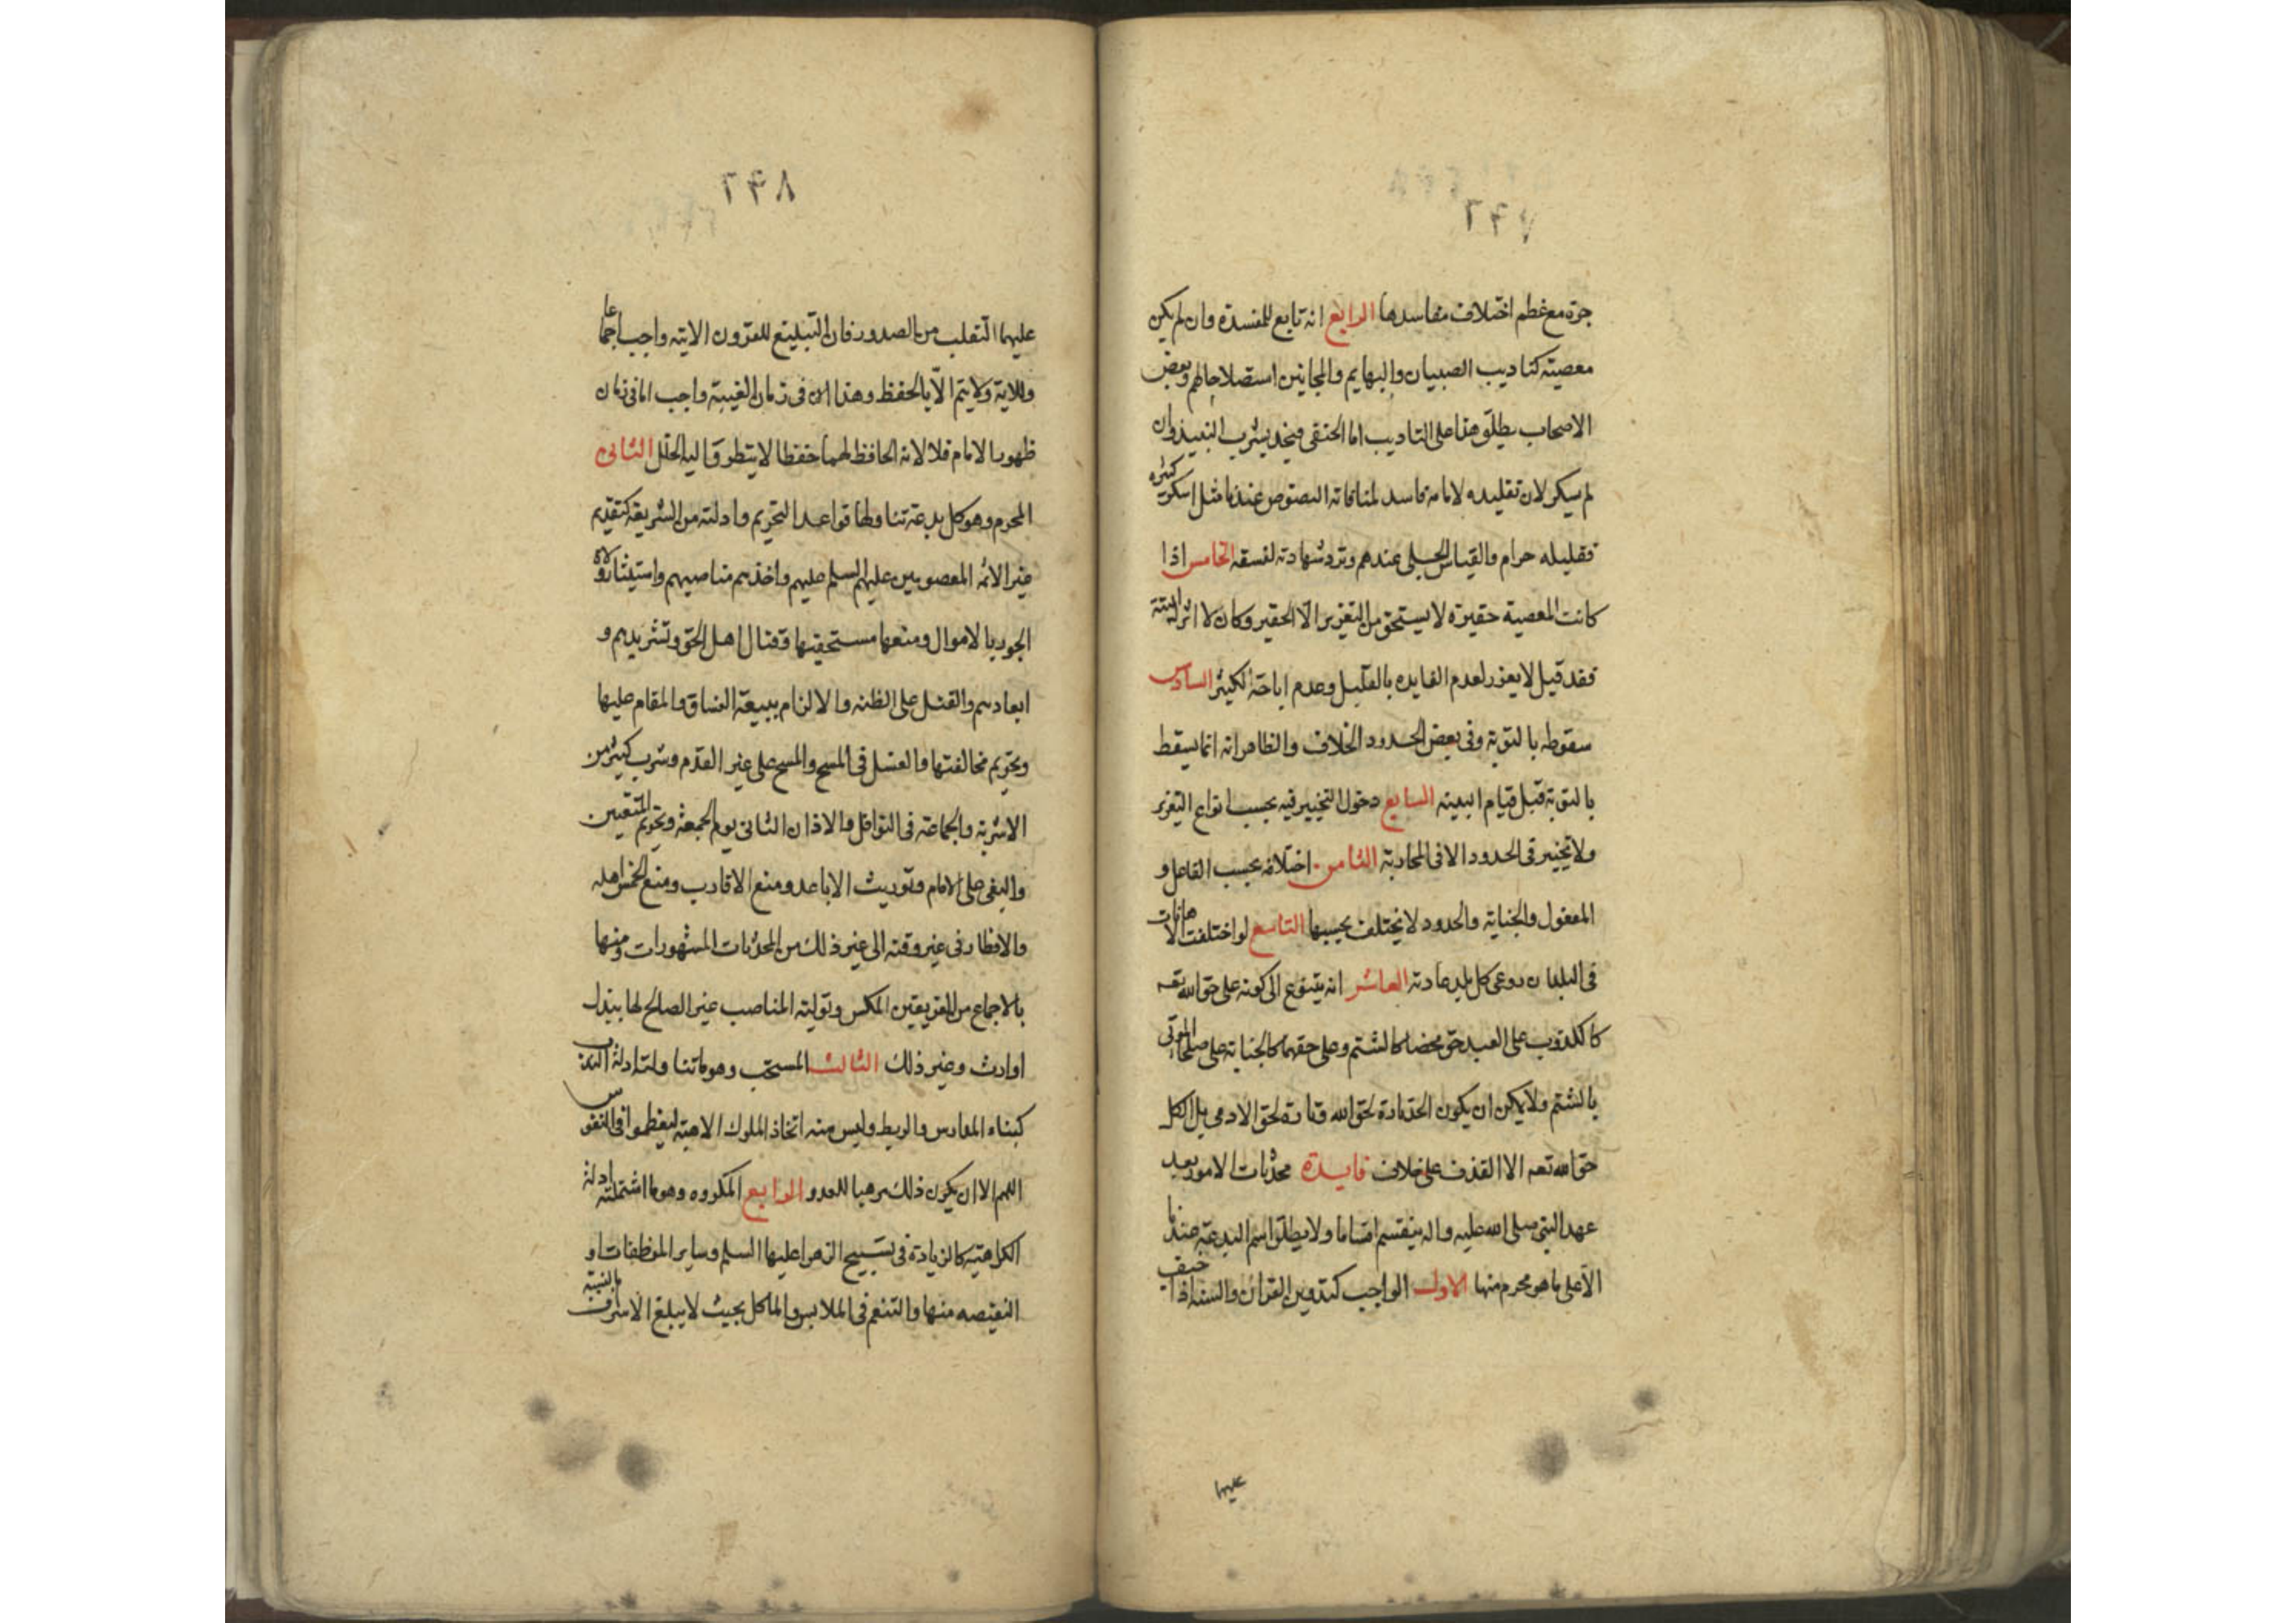 ٢۴٧
جرة مع عظم اختلاف مفاسدها الرابع انه تابع للمفسدة وان لم يكن
معصيته كتاديب الصبيان والبهايم والمجانين استصلاحا لهم وبعض
الاصحاب يطلق هذا على التاديب اما الحنفى فيحد بشرب النبيذ وان
لم يسكر لان تقليده لامامه فاسد لمنافاته النصوص عندنا مثل ما اسكر كثيره
فقليله حرام والقياس الجلى عندهم وترد شهادته لفسقه الخامس اذا
كانت المعصية حقيرة لا يستحق من التعزير الا الحقير وكان لا اثر له البتة
فقد قيل لا يعزر لعدم الفايده بالقليل وعدم اباحة الكثير السادس
سقوطه بالتوبة وفى بعض الحدود الخلاف والظاهر انه انما يسقط
بالتوبة قبل قيام البينه السابع دخول التخيير فيه بحسب انواع التعزير
ولا تخيير فى الحدود الا فى المحاربة الثامن اختلافه بحسب الفاعل و
المفعول والجناية والحدود لا تختلف بحسبها التاسع لو اختلفت الاهانات
فى البلدان روعى كل بلد عادته العاشر انه يتنوع الى كونه على حق الله تعه
كالكذب وعلى العبد حق محضا كالشتم وعلى حقهما كالجناية على صلحاء الموتى
بالشتم ولا يمكن ان يكون الحد تارة لحق الله وتارة لحق الادمى بل الكل
حق الله تعه الا القذف على خلاف فايدة محدثات الامور بعد
عهد النبى صلى الله عليه واله ينقسم اقساما ولا يطلق اسم البدعة عندنا
الا على ما هو محرم منها الاول الواجب كتدوين القران والسنه اذا خيف
عليهما
٢۴٨
عليهما التفلت من الصدور فان التبليغ للقرون الاتيه واجب اجماعا
وللاية ولا يتم الا بالحفظ وهذا الان فى زمان الغيبة واجب اما فى زمان
ظهور الامام فلا لانه الحافظ لهما حفظا لا يتطرق اليه الخلل الثانى
المحرم وهو كل بدعة تناولها قواعد التحريم وادلته من الشريعة كتقديم
غير الائمه المعصومين عليهم السلم عليهم واخذهم مناصبهم واستيثار ولاة
الجور بالاموال ومنعها مستحقيها وقتال اهل الحق وتشريدهم و
ابعادهم والقتل على الظنه والالزام ببيعة الفساق والمقام عليها
وتحريم مخالفتها والغسل فى المسح والمسح على غير القدم وشرب كثير من
الاشربة والجماعة فى النوافل والاذان الثانى يوم الجمعة وتحريم المتعتين
والبغى على الامام وتوريث الاباعد ومنع الاقارب ومنع الخمس اهله
والافطار فى غير وقته الى غير ذلك من المحدثات المشهورات ومنها
بالاجماع من الفريقين المكس وتولية المناصب غير الصالح لها ببذل
او ارث وغير ذلك الثالث المستحب وهو ما تناولته ادلة الندب
كبناء المدارس والربط وليس منه اتخاذ الملوك الاهبة ليعظموا فى النفوس
اللهم الا ان يكون ذلك مرهبا للعدو الرابع المكروه وهو ما اشتملته ادلة
الكراهية كالزيادة فى تسبيح الزهرا عليها السلم وساير الموظفات او
النقيصه منها والتنعم فى الملابس والماكل بحيث لا يبلغ الاسراف بالنسبة